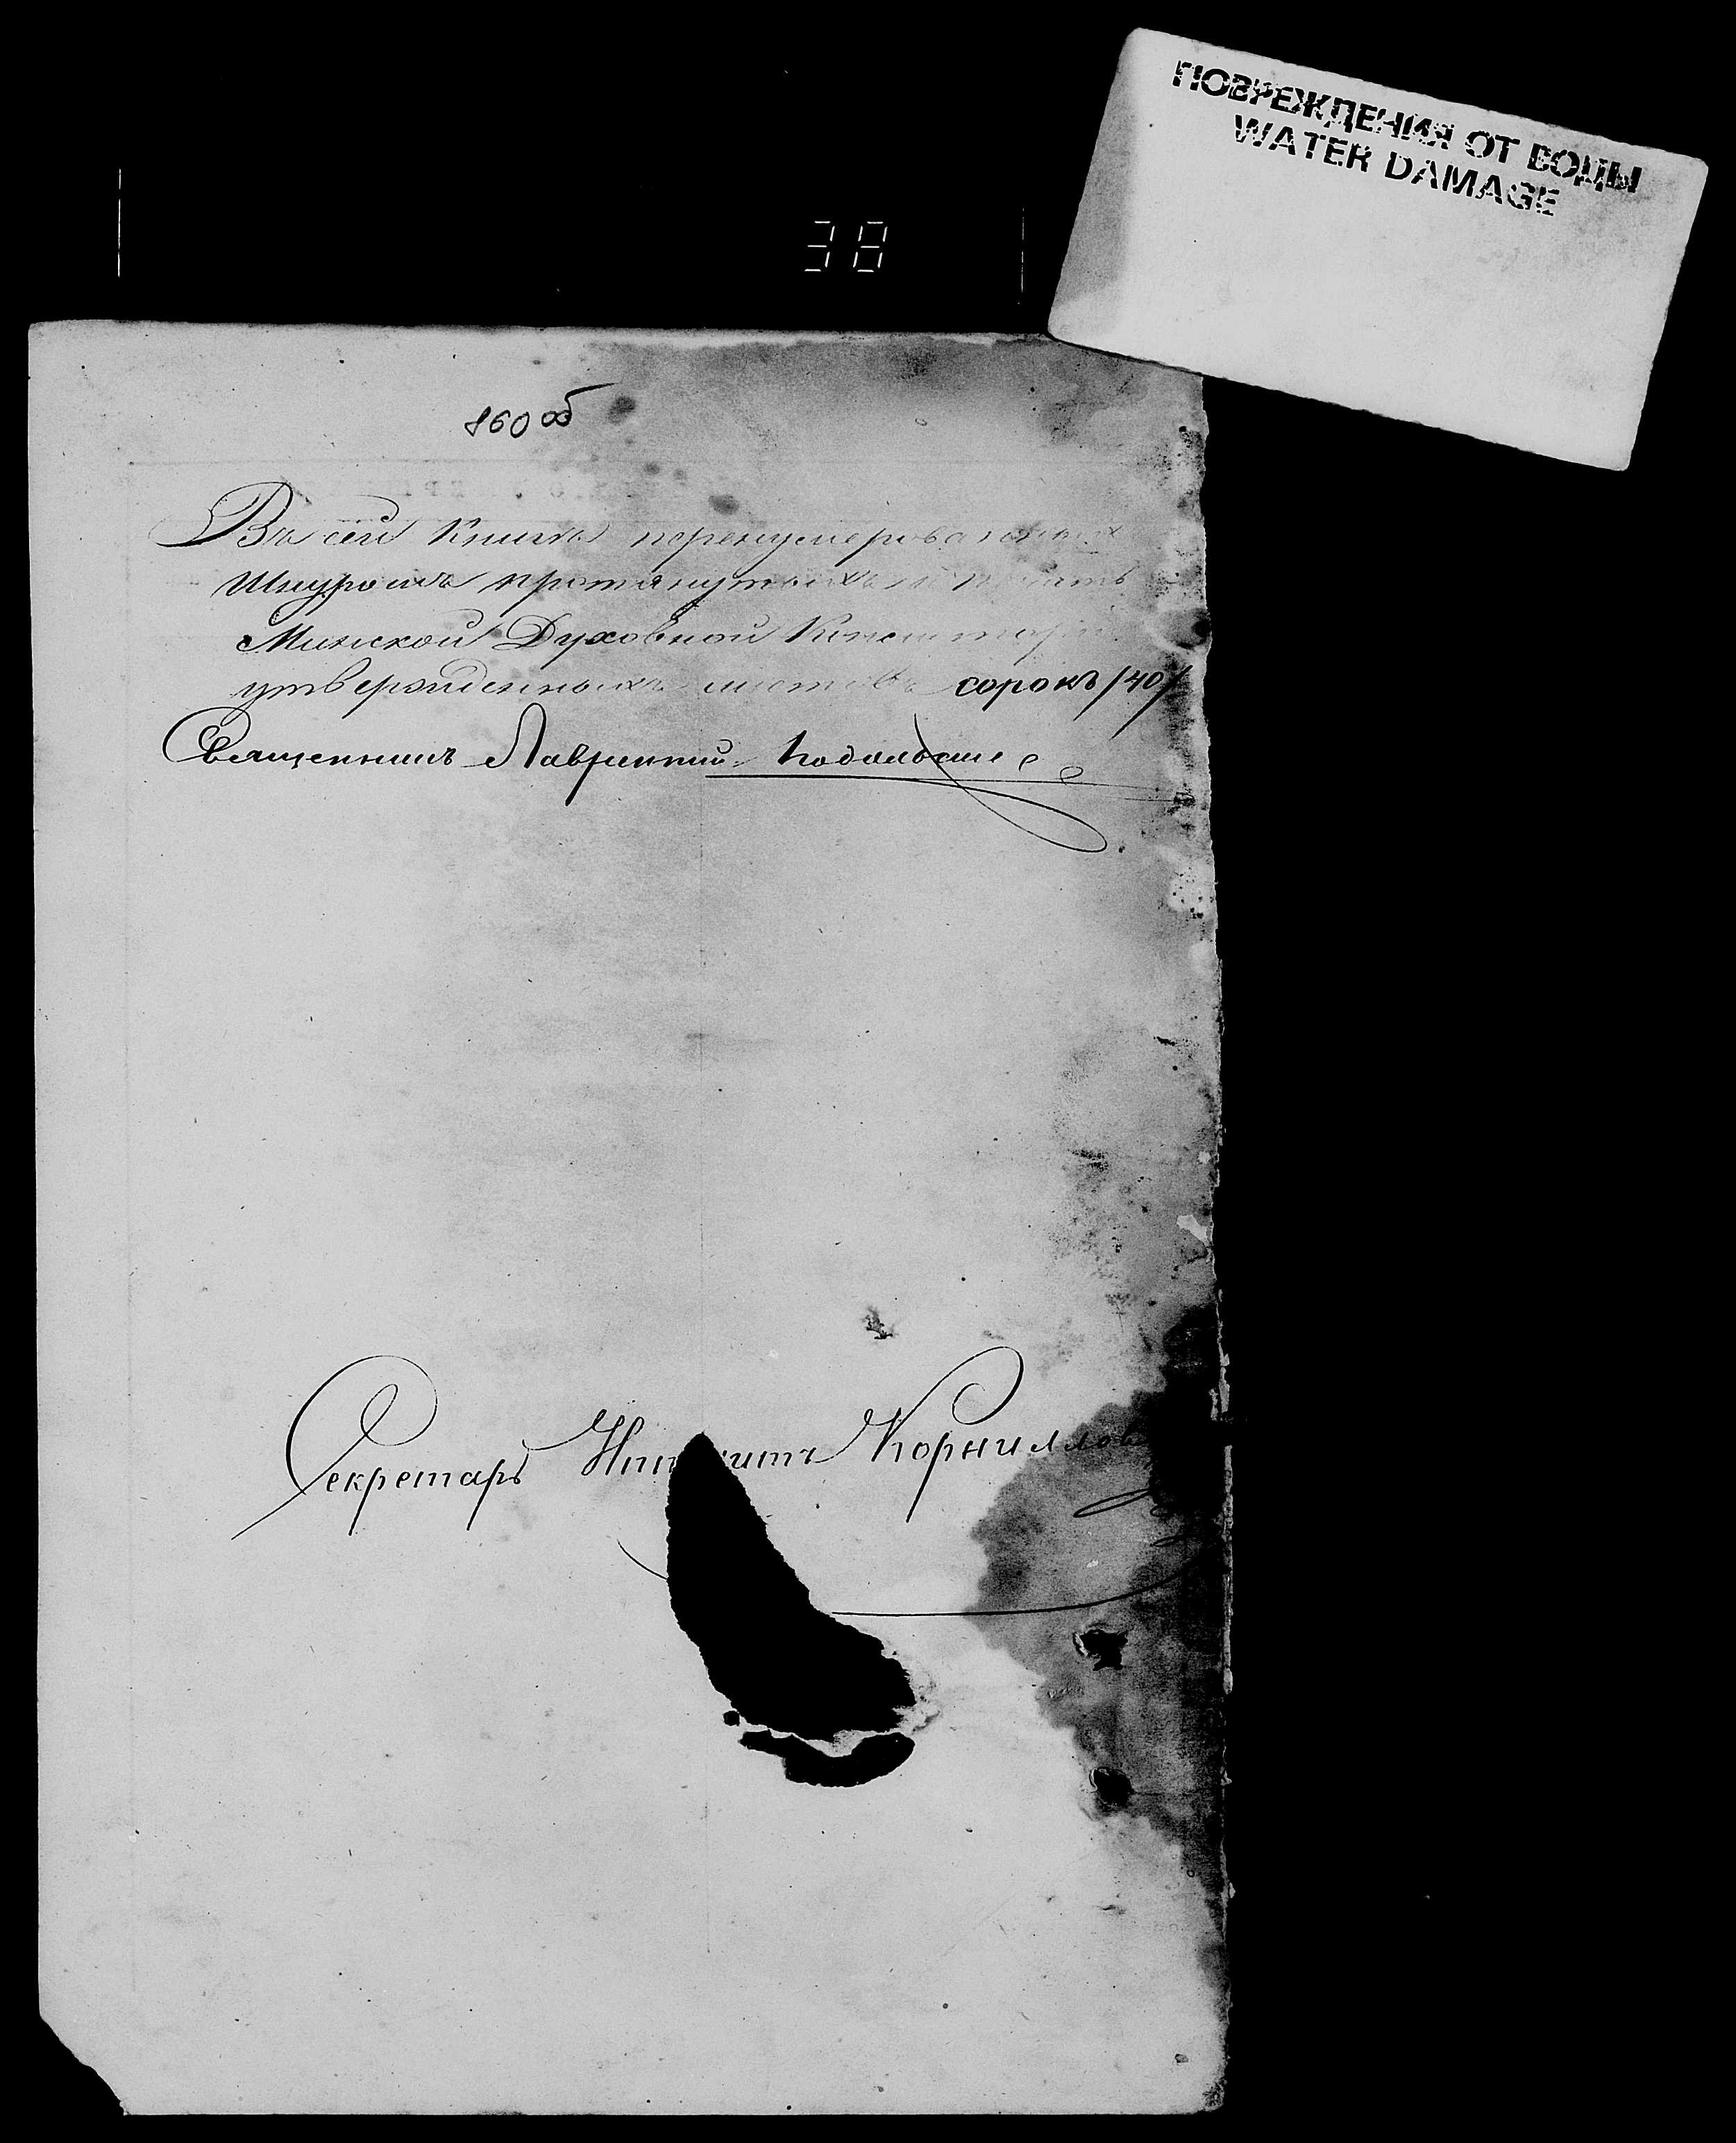 ПОВРЕЖДЕНИЯ ОТ ВОДЫ
WATER DAMAGE
38
860 об
Въ сей Книгѣ перенумерованныхъ
Шнуромъ протянутыхъ и печатью
Минской Духовной Консисторіи
утвержденныхъ листовъ сорокъ /40/
Священникъ Лаврентій
Секретарь Корниллов